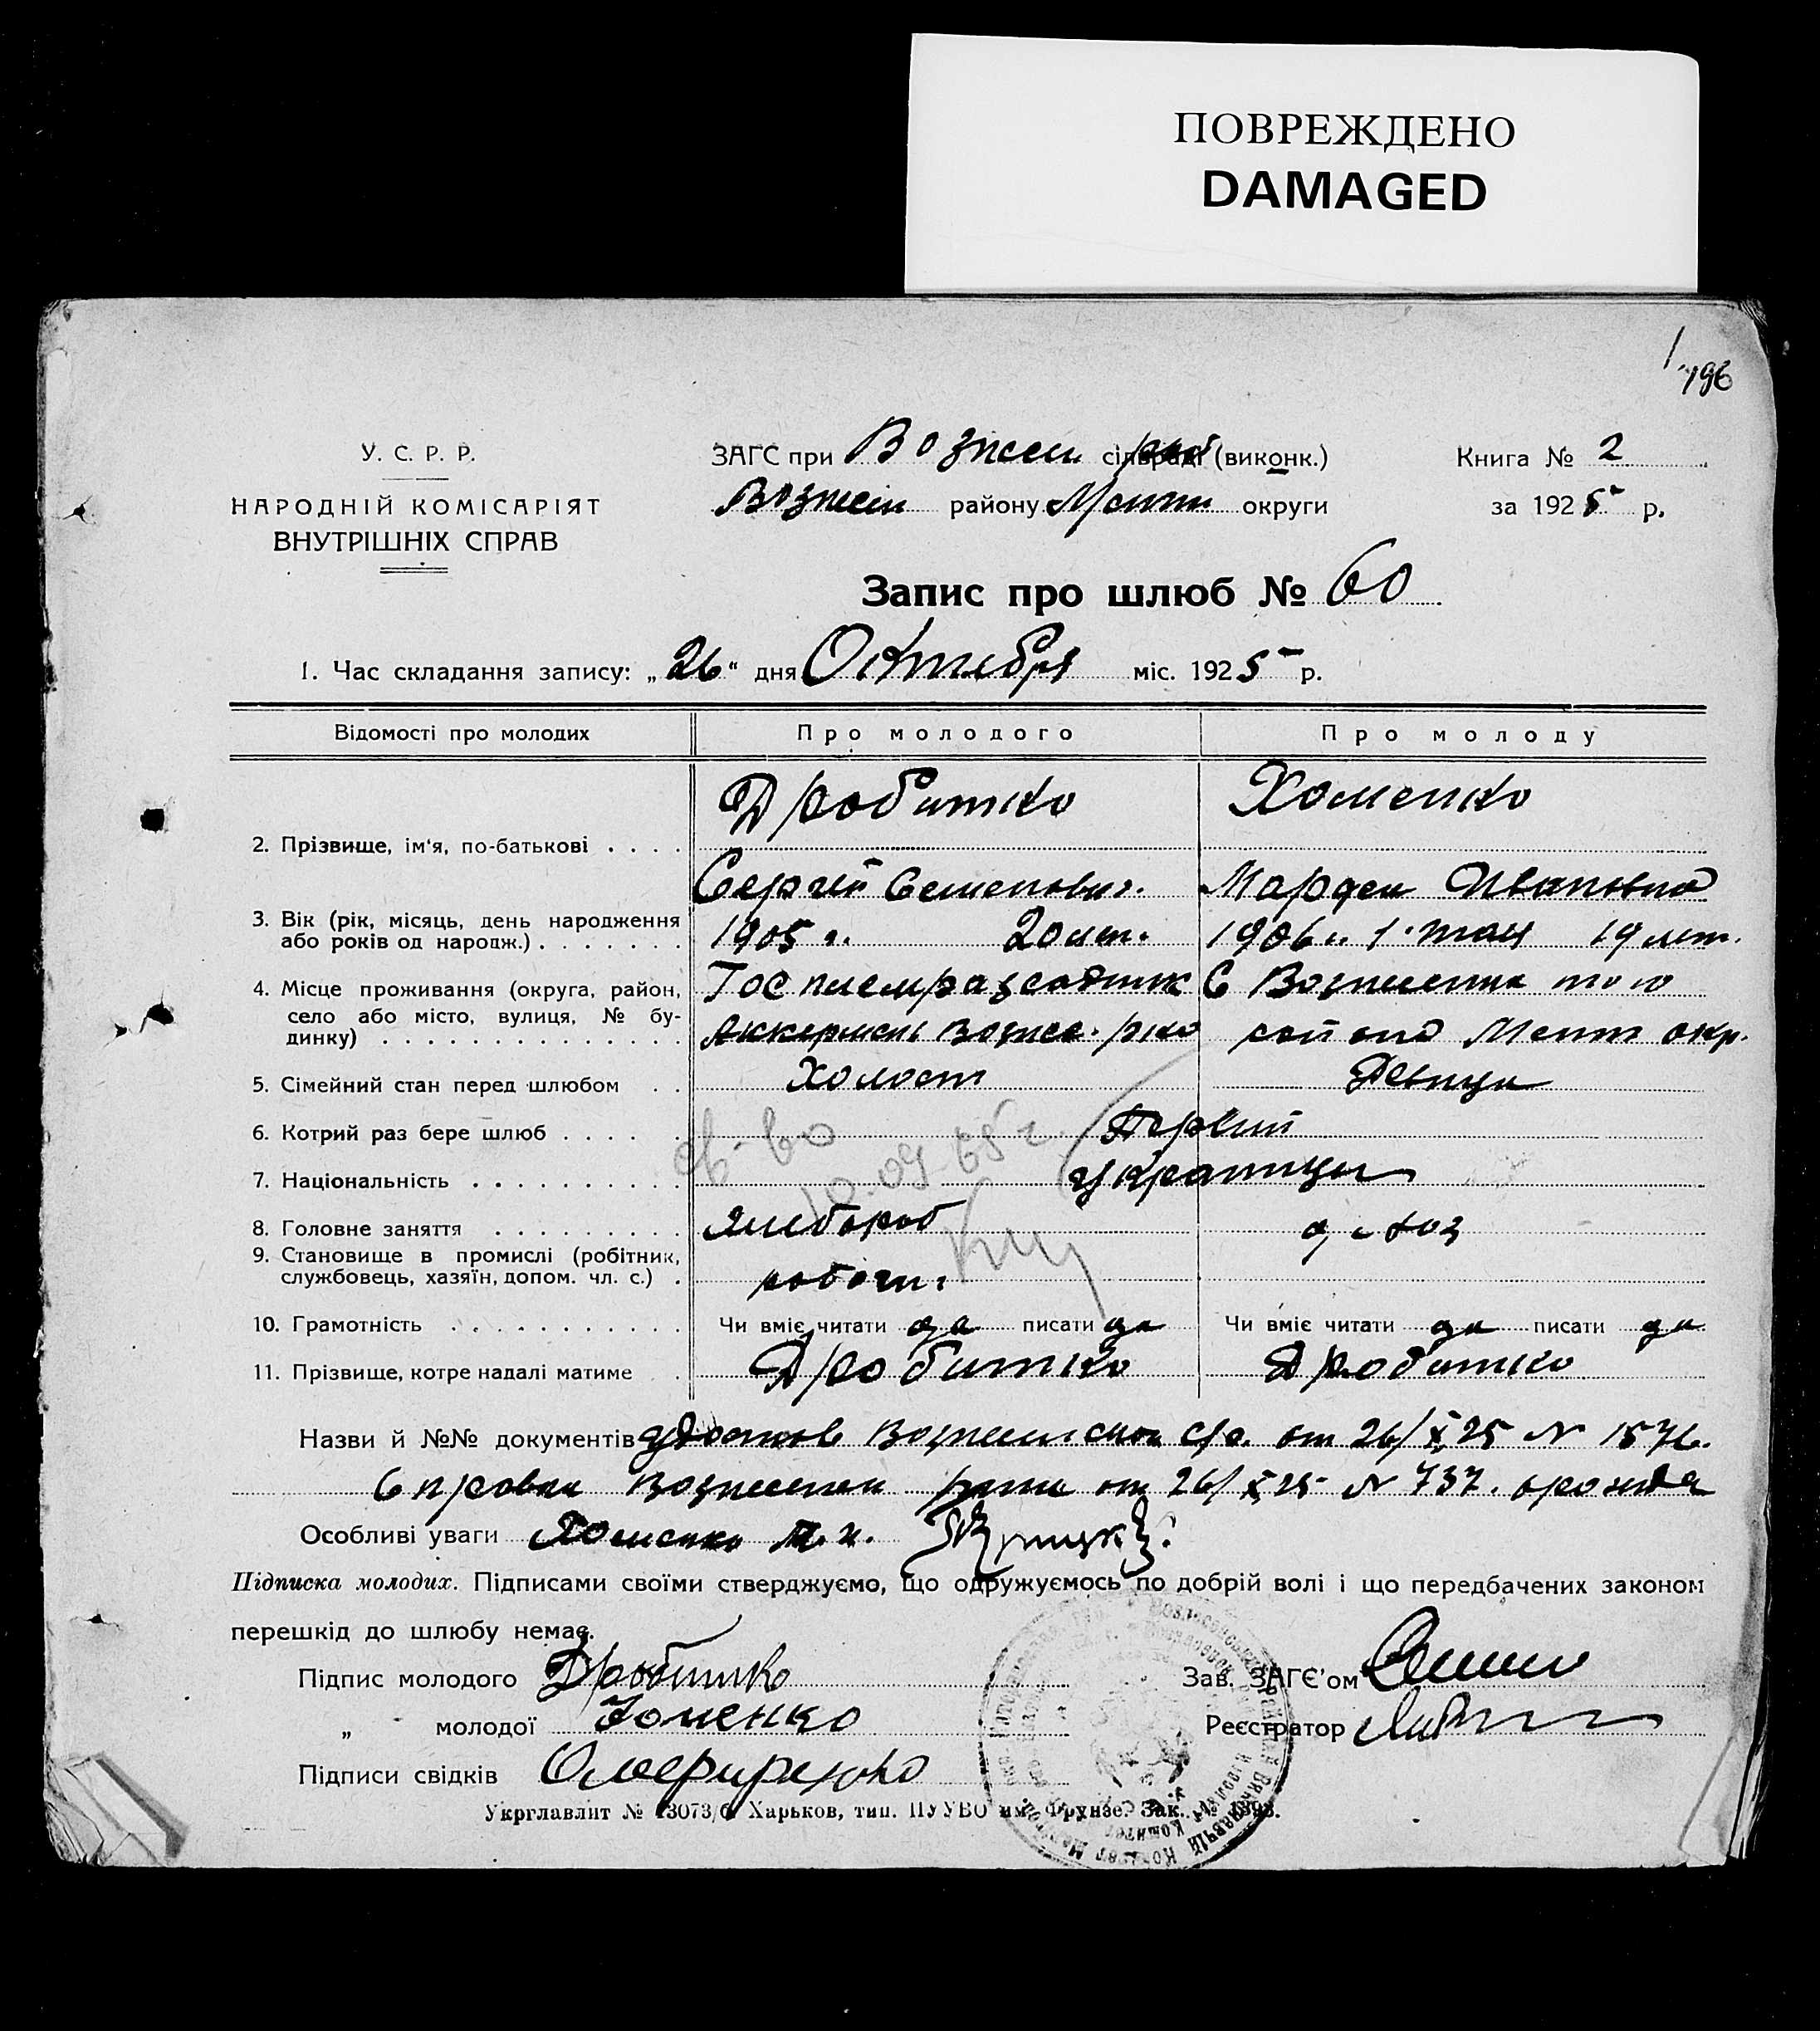 ПОВРЕЖДЕНО
DAMAGED
196
У. С. Р. Р.
НАРОДНІЙ КОМІСАРІЯТ
ВНУТРІШНІХ СПРАВ
ЗАГС при Вознесен сільраді (виконк.)
Вознесен району округи
Книга № 2
за 1925 р.
Запис про шлюб № 60
1. Час складання запису: „26“ дня Октября міс. 1925 р.
Відомості про молодих Про молодого Про молоду
2. Прізвище, ім'я, по-батькові . . . . Дробитко Хоменко
Сергей Семенович. Ивановна
3. Вік (рік, місяць, день народження або років од народж.) . . . . . . . 1905 г. 20 лет. 1906 г. 1 мая 19 лет.
4. Місце проживання (округа, район, село або місто, вулиця, № будинку) . . . . . . . . . . . . . . Госплемрассадник С Вознесенка того
Аккермень Вознес. окр.
5. Сімейний стан перед шлюбом . . Холост Девица
6. Котрий раз бере шлюб . . . . . Первий
7. Національність . . . . . . . . . . Украинцы
8. Головне заняття . . . . . . . . . Хлебороб
9. Становище в промислі (робітник, службовець, хазяїн, допом. чл. с.) . рабочи.
св-во
10. Грамотність . . . . . . . . . . . Чи вміє читати да писати да Чи вміє читати да писати да
11. Прізвище, котре надалі матиме . Дробитко Дробитко
Назви й №№ документів Вознесенской с/с. от 26/X 25 №
Справка Вознесенск от 26/X 25 № 737. о рожде
Особливі уваги Хоменко М. И.
Підписка молодих. Підписами своїми стверджуємо, що одружуємось по добрій волі і що передбачених законом
перешкід до шлюбу немає.
Підпис молодого Дробитко
„ молодої Хоменко
Підписи свідків
Зав. ЗАГС'ом
Реєстратор
Укрглавліт № 13073/б Харьков, тип. ПУУВО им. Фрунзе. Зак. №